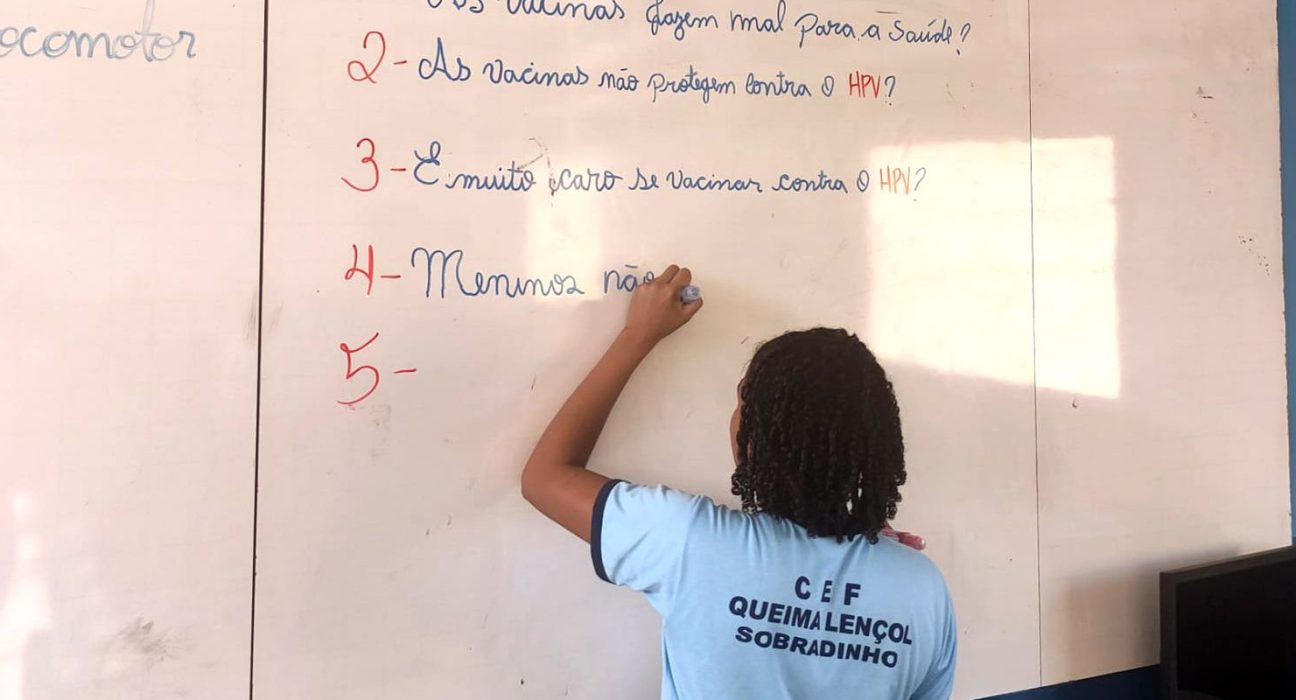 ocomotor
vacinas fazem mal para a Saúde?
2- As Vacinas não protegem contra o HPV?
3- É muito caro se vacinar contra o HPV?
4- Meninos não
5-
CEF
QUEIMA LENÇOL
SOBRADINHO